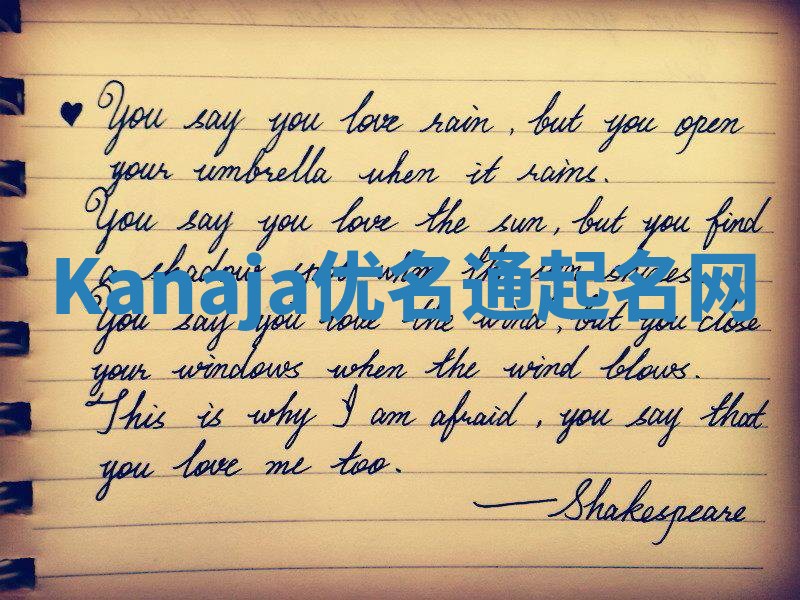 ♥ You say you love rain, but you open
your umbrella when it rains.
You say you love the sun, but you find
a shadow spot when the sun shines.
Kanaja优名通起名网
You say you love the wind, but you close
your windows when the wind blows.
This is why I am afraid, you say that
you love me too.
—Shakespeare